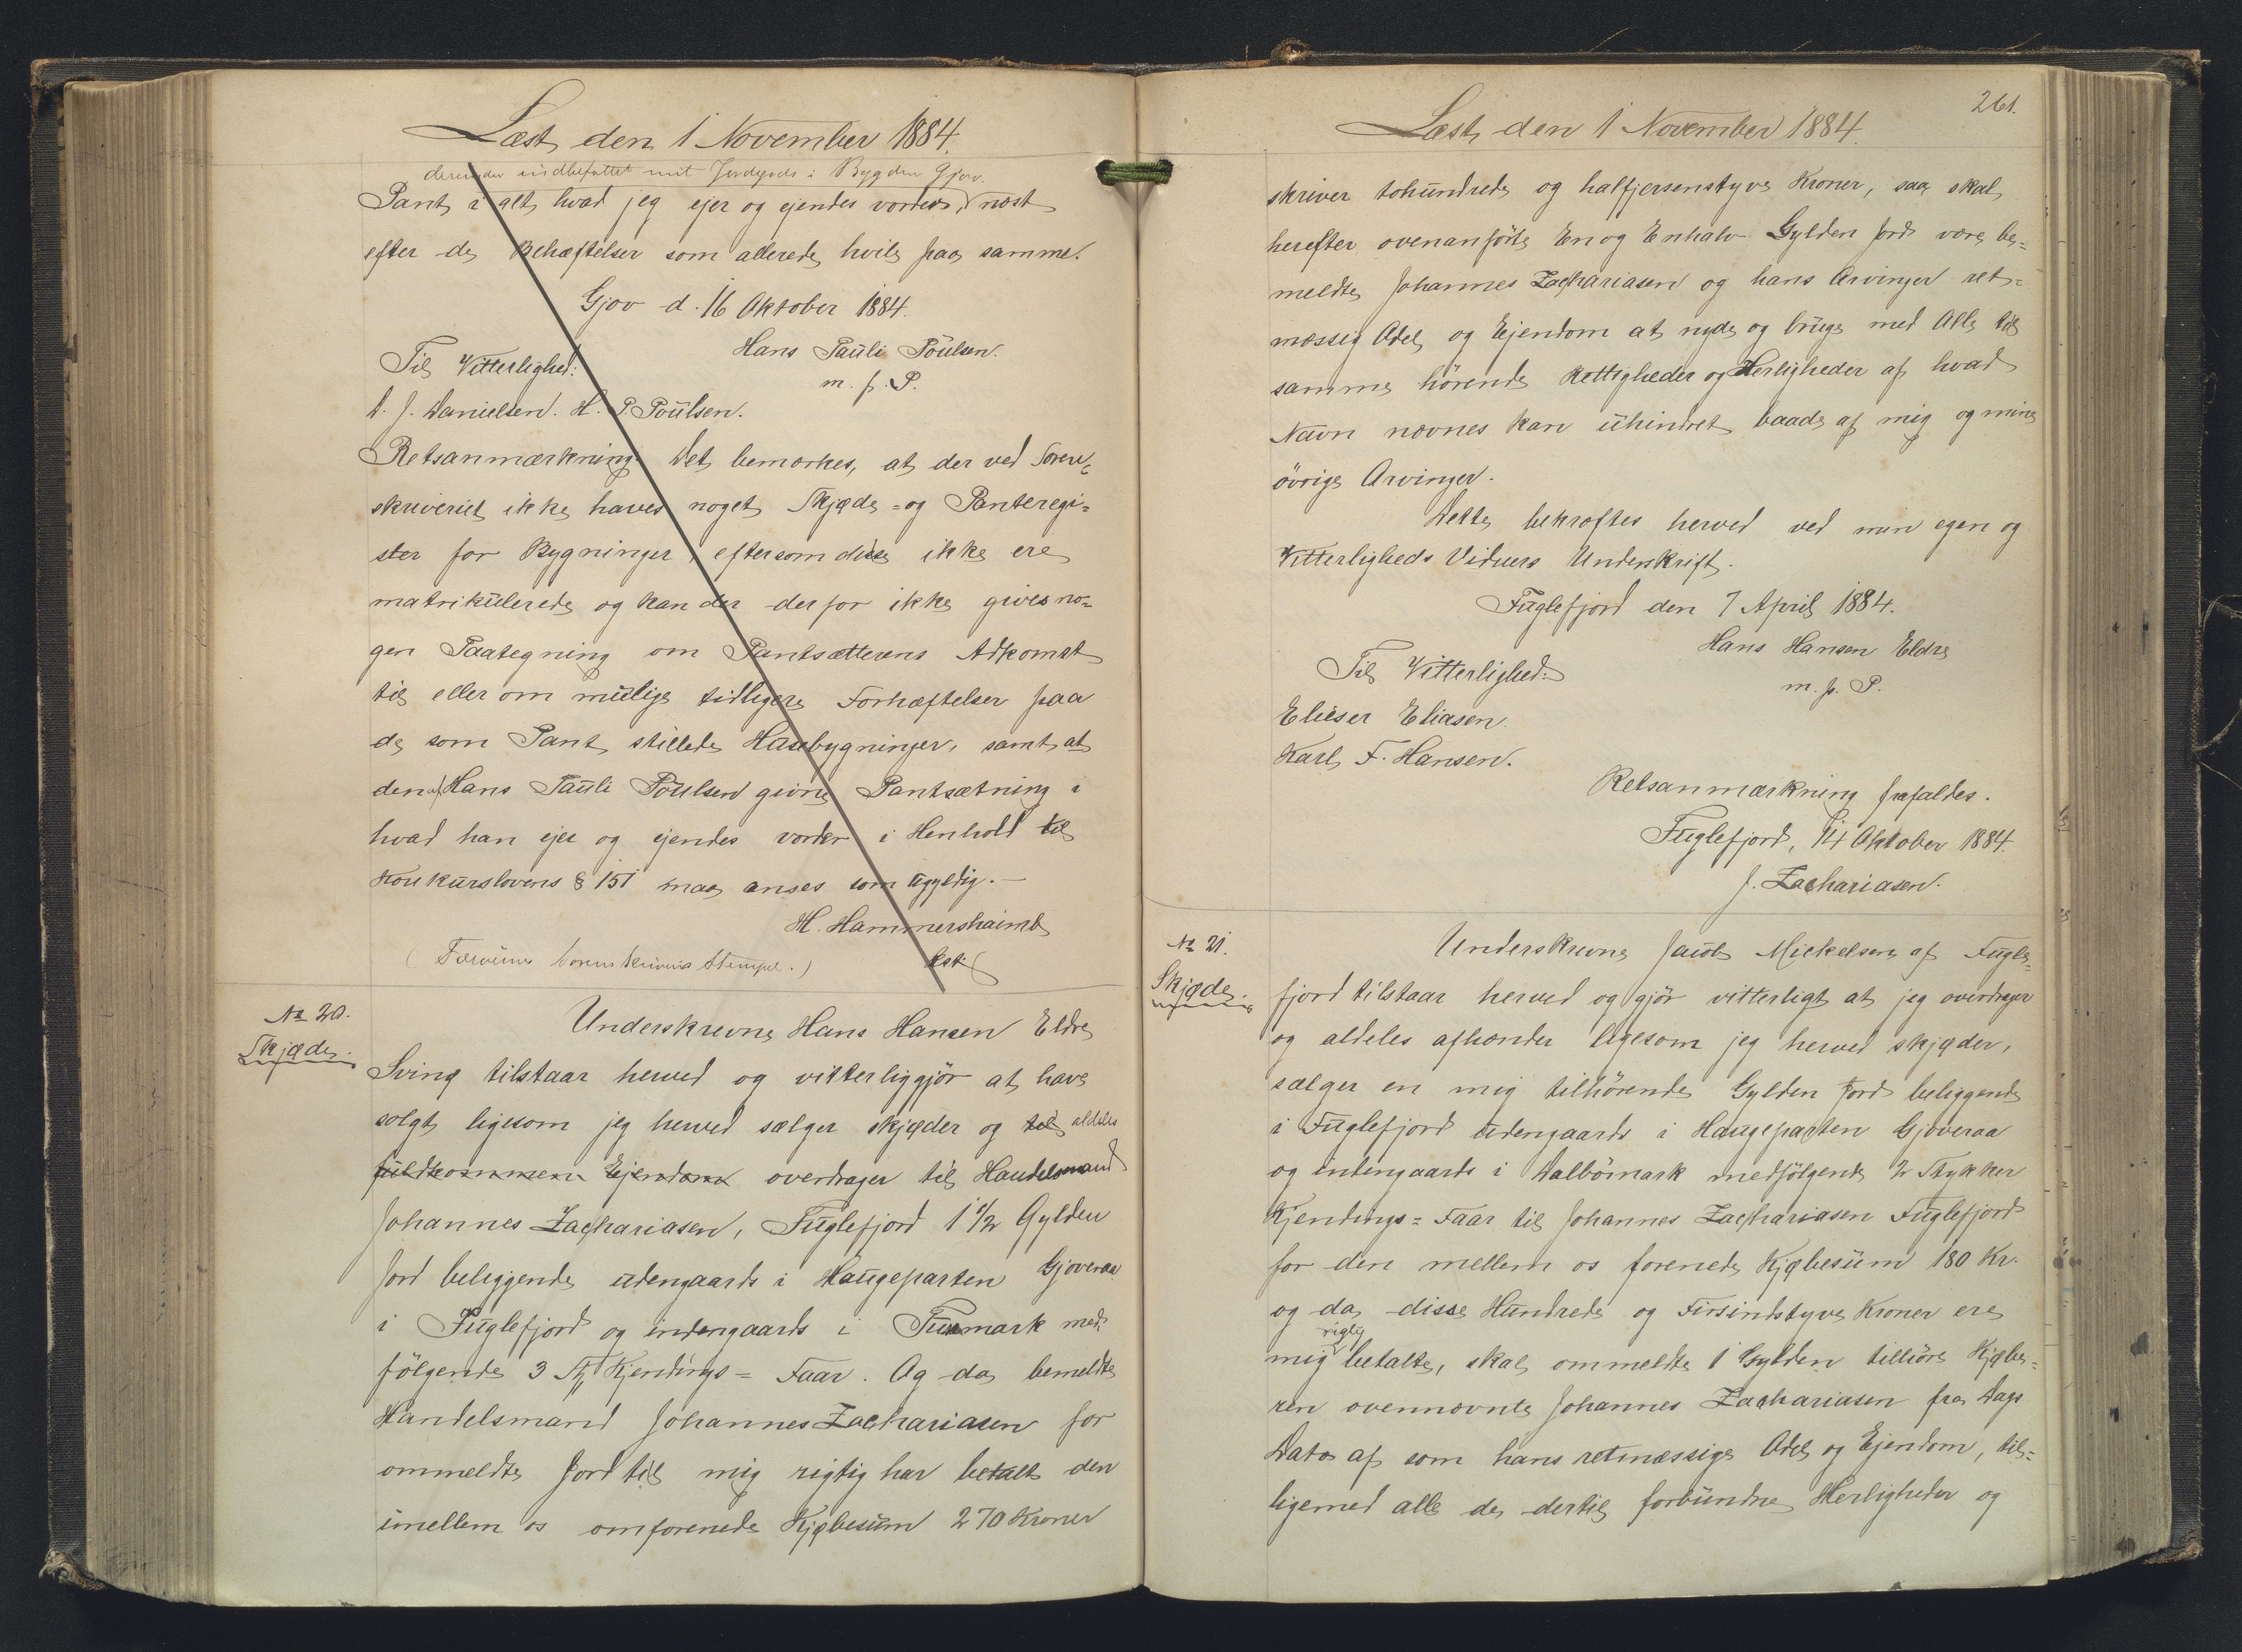 Læst den 1 November 1884.
derunder indbefattet mit Jordgods i Bygden Gjov.
Pant i alt hvad jeg ejer og ejendes vorder, næst
efter de Behæftelser som allerede hvile paa samme.
Gjov d. 16 Oktober 1884.
Hans Pauli Poulsen.
m. p. P.
Til Vitterlighed:
D. J. Danielsen. H. P. Poulsen.
Retsanmærkning. Det bemærkes, at der ved Soren-
skriveriet ikke haves noget Skjøde- og Panteregi-
ster for Bygninger, eftersom disse ikke ere
matrikulerede og kan der derfor ikke gives no-
gen Paategning om Pantsætterens Adkomst
til eller om mulige tidligere Forhæftelser paa
de som Pant stillede Husebygninger, samt at
den af Hans Pauli Poulsen givne Pantsætning i
hvad han ejer og ejendes vorder i Henhold til
Konkurslovens § 151 maa anses som ugyldig.—
H. Hammershaimb
Cst.
(Færøerne Sorenskriveris Stempel.)
№ 20.
Skjøde.
Underskrevne Hans Hansen Eldre
Sving tilstaar herved og vitterliggjör at have
solgt ligesom jeg herved sælger skjøder og til aldeles
fuldkommen Ejendom overdrager til Handelsmand
Johannes Zachariasen, Fuglefjord 1 1/2 Gylden
Jord beliggende udengaards i Haugeparten Gjoveraa
i Fuglefjord og indengaards i Tunmark med-
fölgende 3 St Kjendings= Faar. Og da bemeldte
Handelsmand Johannes Zachariasen for
ommeldte Jord til mig rigtig har betalt den
imellem os omforenede Kjøbesum 270 Kroner
261.
Læst den 1 November 1884.
skriver tohundrede og halfjersenstyve Kroner, saa skal
herefter ovenanförte En og Enhalv Gylden Jord være be-
meldte Johannes Zachariasen og hans Arvinger ret-
mæssig Odel og Ejendom at nyde og bruge med Alle til
samme hörende Rettigheder og Herligheder af hvad
Navn nævnes kan uhindret baade af mig og mine
övrige Arvinger.
Dette bekræftes herved ved min egen og
Vitterligheds Vidners Underskrift.
Fuglefjord den 7 April 1884.
Hans Hansen Eldre
m. p. P.
Til Vitterlighed:
Elieser Eliasen.
Karl F. Hansen.
Retsanmærkning frafaldes.
Fuglefjord, 14 Oktober 1884.
J. Zachariasen.
№ 21.
Skjøde.
Underskrevne Jacob Mickelsen af Fugle-
fjord tilstaar herved og gjör vitterligt at jeg overdrager
og aldeles afhænder ligesom jeg herved skjøder,
sælger en mig tilhörende Gylden Jord beliggende
i Fuglefjord udengaards i Haugeparten Gjoveraa
og indengaards i Dalbömark medfölgende 2 Stykker
Kjendings= Faar til Johannes Zachariasen Fuglefjord
for den mellem os forenede Kjøbesum 180 Kr.
og da disse Hundrede og Firsindstyve Kroner ere
rigtig
mig betalte, skal ommeldte 1 Gylden tilhöre Kjøbe-
ren ovennævnte Johannes Zachariasen fra Dags
Dato af som hans retmæssige Odel og Ejendom, til-
ligemed alle de dertil forbundne Herligheder og